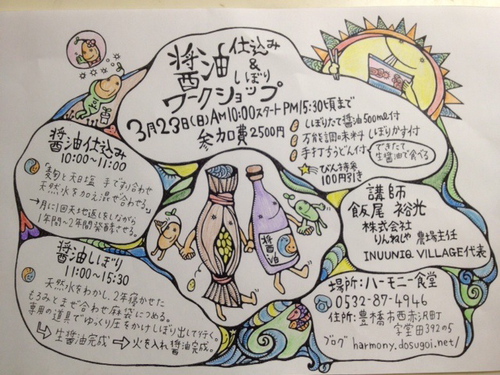 醤油仕込み
&
しぼり
ワークショップ
3月23日(日)AM10:00スタートPM15:30頃まで
参加費2500円
しぼりたて醤油500ml付
万能調味料 しぼりかす付
手打ちうどん付
できたて
生醤油で食べる
びん持参
100円引き
醤油仕込み
10:00〜11:00
麹と天日塩 手ですり合わせ
天然水を加え混ぜ合わせる。
→月に1回天地返しをしながら
1年間〜2年間発酵させる。
醤油しぼり
11:00〜15:30
天然水をわかし、2年寝かせた
もろみとまぜ合わせ麻袋につめる。
専用の道具でゆっくり圧をかけしぼり出して行く。
→生醤油完成→火を入れ醤油完成。
醤油
講師
飯尾 裕光
株式会社
りんねしゃ 農場主任
INUUNIQ VILLAGE代表
場所:ハーモニー食堂
0532-87-4946
住所:豊橋市西赤沢町
宝堂田392の5
ブログ harmony.dosugoi.net/